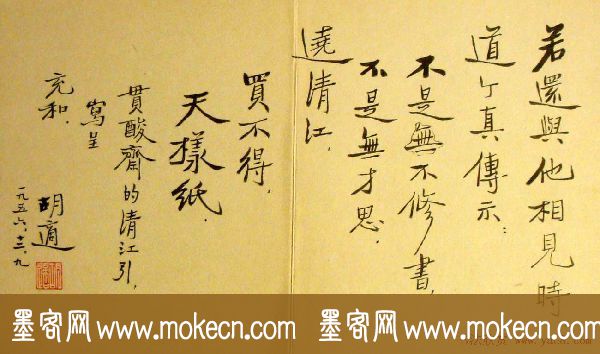 若還與他相見時
道个真傳示：
不是無不修書，
不是無才思，
遶清江，
買不得，
天樣紙．
貫酸齋的清江引，
寫呈
充和．
胡適
一九五六、十二、九
墨客网 www.mokecn.com 墨客网 www.mokecn.com